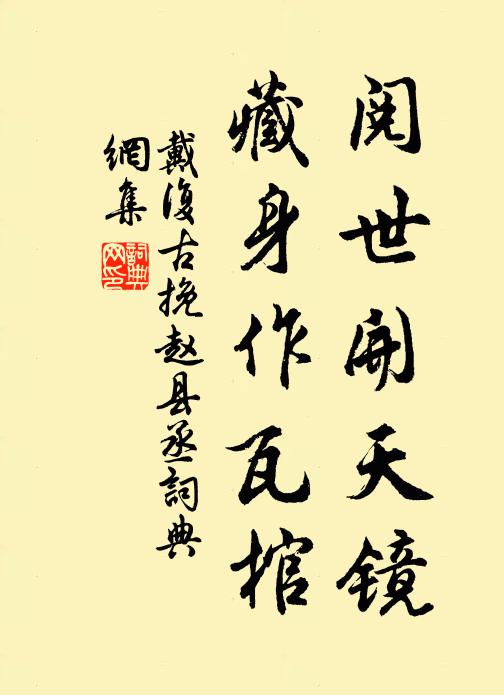 阅世開天镜
藏身作瓦棺
戴復古挽赵县丞詞典
網集
詞典
网印